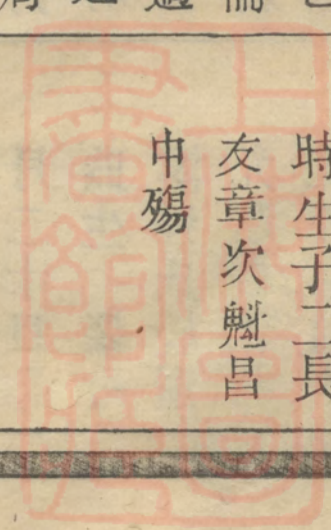 時生子二長
友章次魁昌
中殤